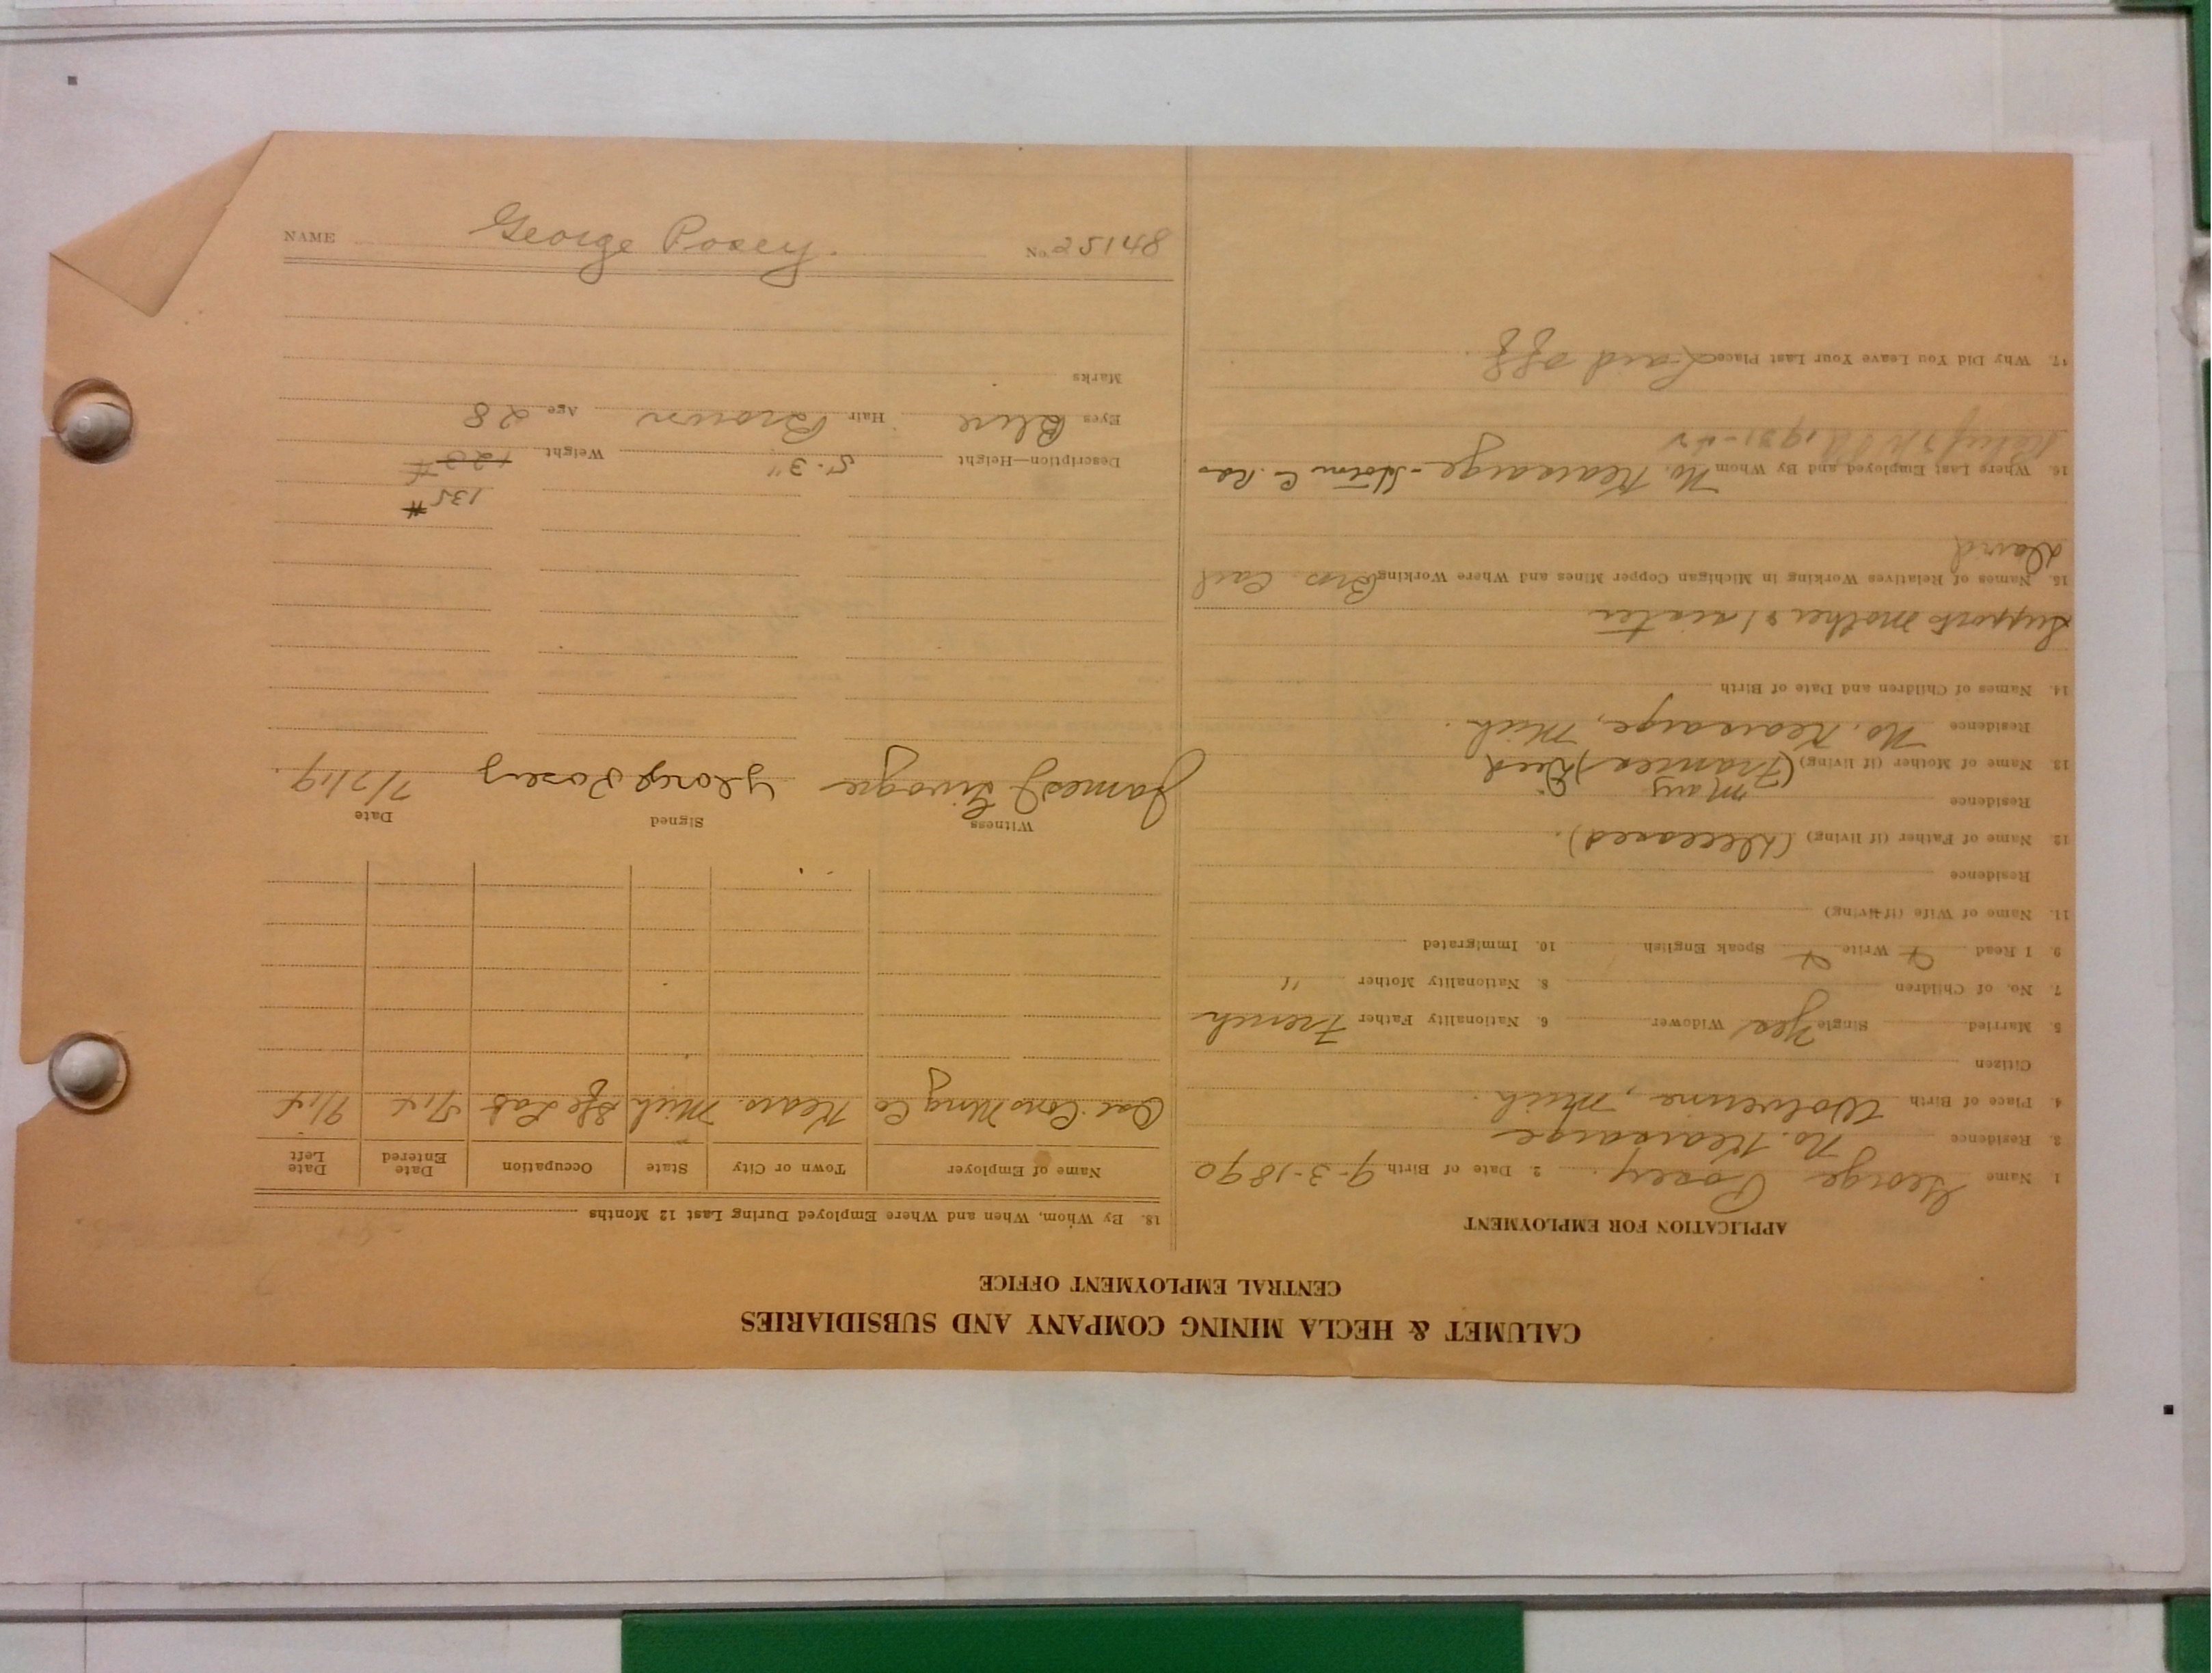 CALUMET & HECLA MINING COMPANY AND SUBSIDIARIES
CENTRAL EMPLOYMENT OFFICE
APPLICATION FOR EMPLOYMENT
1. Name George Posey. 2. Date of Birth 9-3-1890
3. Residence No. Kearsarge
4. Place of Birth Wolverine, Mich.
Citizen
5. Married Single Yes Widower 6. Nationality Father French
7. No. of Children 8. Nationality Mother "
9. I Read Write Speak English 10. Immigrated
11. Name of Wife (if living)
Residence
12. Name of Father (if living) (Deceased).
Residence
Mary
13. Name of Mother (if living) (Frances) Died
Residence No. Kearsarge, Mich.
14. Names of Children and Date of Birth
Supports mother & 1 sister
15. Names of Relatives Working in Michigan Copper Mines and Where Working Bros. Carl
David
16. Where Last Employed and By Whom No. Kearsarge - C.
1931-42
17. Why Did You Leave Your Last Place Laid off
18. By Whom, When and Where Employed During Last 12 Months
Name of Employer Town or City State Occupation Date Entered Date Left
Osc. Cons Mng Co Kears. Mich Sfc Lab
Witness Signed Date
James J George Posey 7/7/19.
135#
Description—Height 5.3" Weight 120#
Eyes Blue Hair Brown Age 28
Marks
NAME George Posey. No. 25148